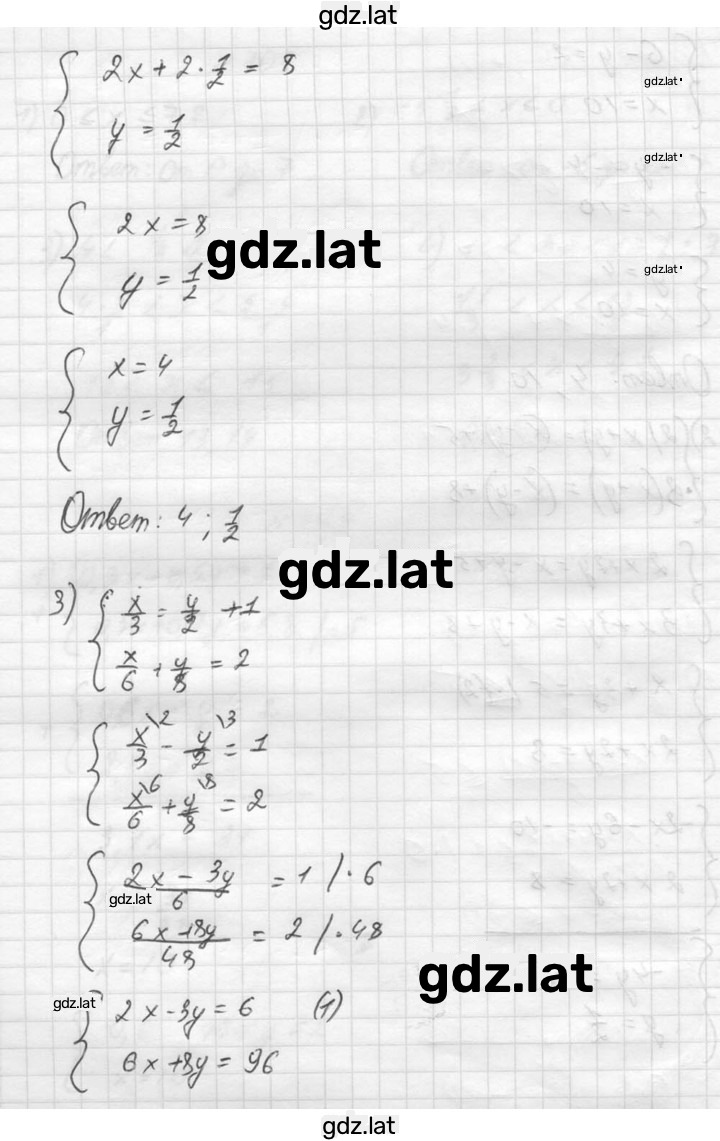 gdz.lat
2x + 2 · 1/2 = 8
gdz.lat
y = 1/2
gdz.lat
2x = 8
gdz.lat
y = 1/2
gdz.lat
x = 4
y = 1/2
Ответ: 4; 1/2
gdz.lat
3) x/3 = y/2 + 1
x/6 + y/8 = 2
x/3 \2 - y/2 \3 = 1
x/6 \6 + y/8 \8 = 2
2x - 3y / 6 = 1 /· 6
gdz.lat
6x + 8y / 48 = 2 /· 48
gdz.lat
gdz.lat
2x - 3y = 6 (1)
6x + 8y = 96
gdz.lat